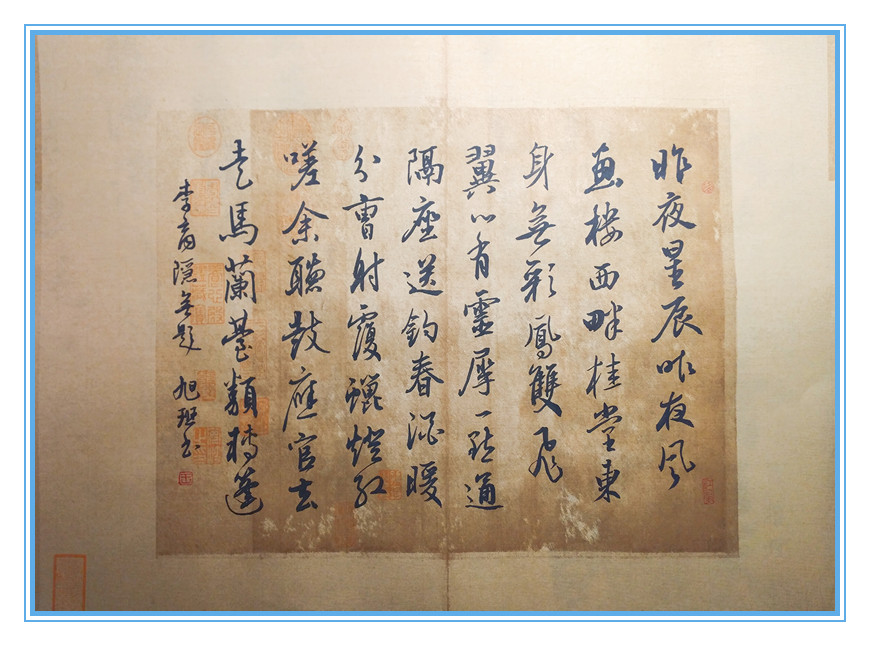 昨夜星辰昨夜風
畫樓西畔桂堂東
身無彩鳳雙飛
翼心有靈犀一點通
隔座送鈎春酒暖
分曹射覆蠟燈紅
嗟余聽鼓應官去
走馬蘭臺類轉蓬
李商隱無題 旭